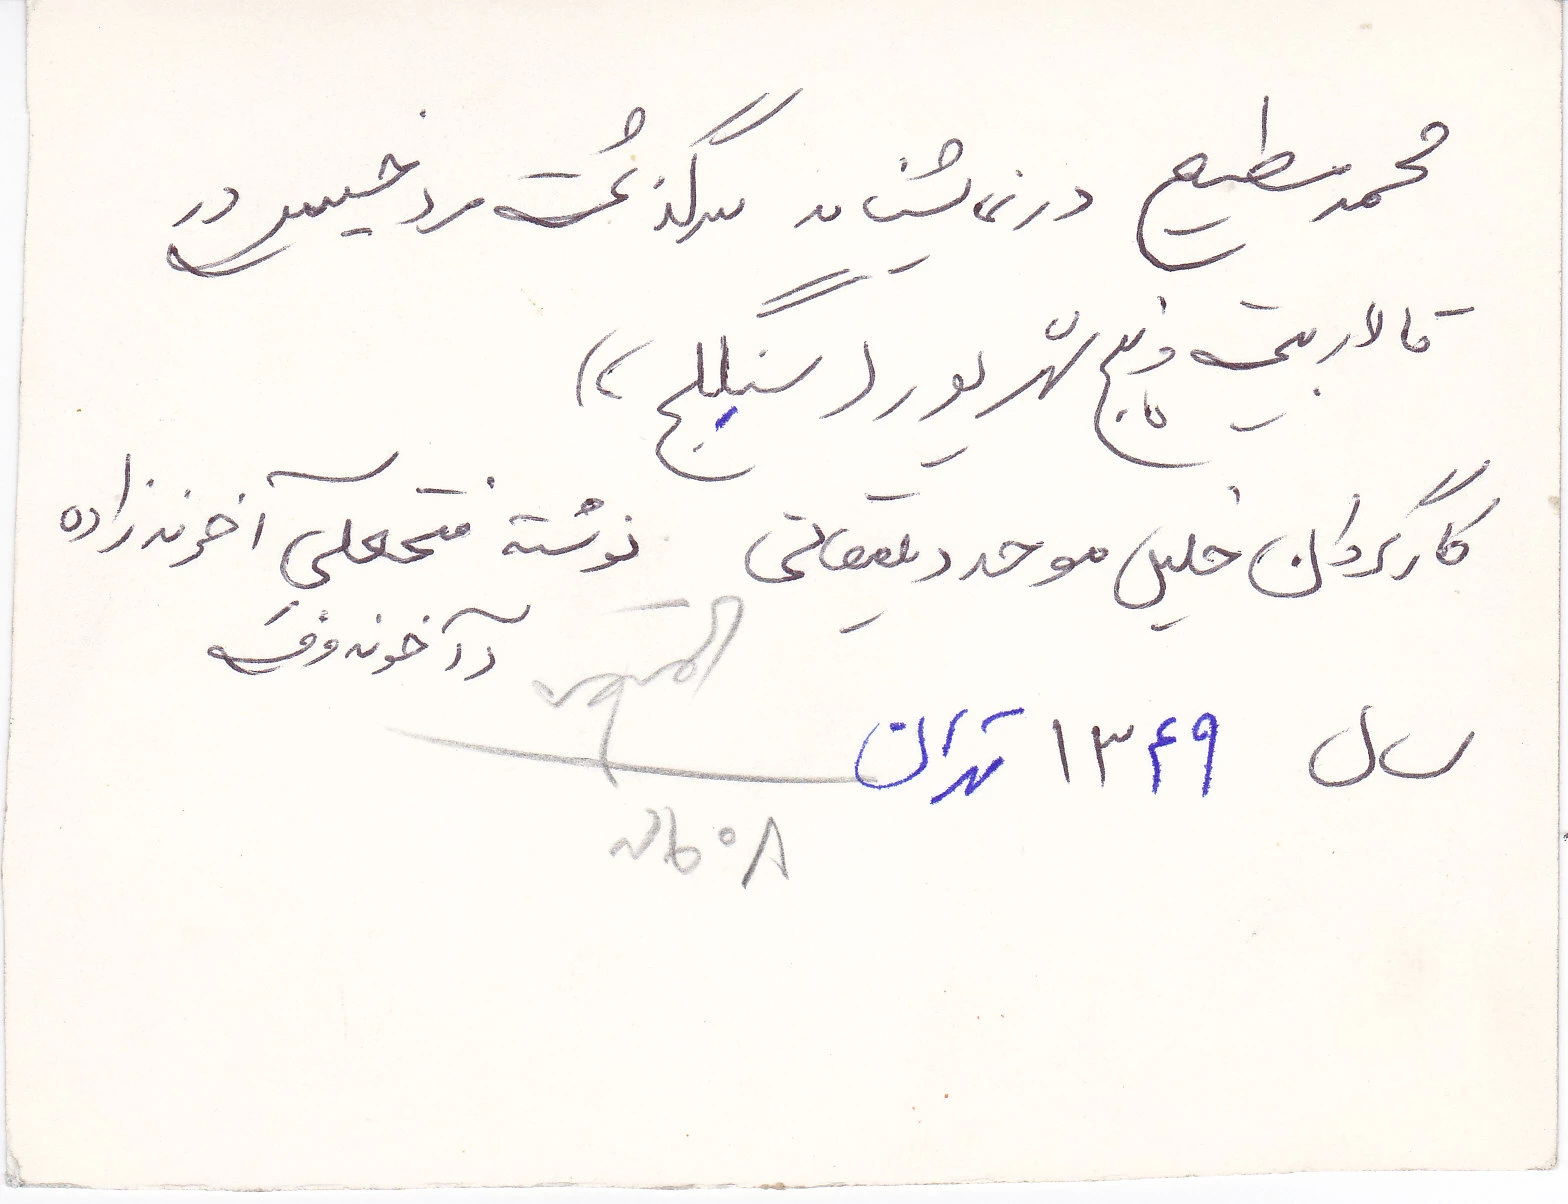 محمد مطیع در نمایشنامه سرگذشت مرد خسیس در
تالار بیست و پنج شهریور (سنگلج)
کارگردان خلیل موحد دیلمقانی نوشته فتحعلی آخوندزاده
(آخوندوف)
سال ۱۳۴۹ تهران